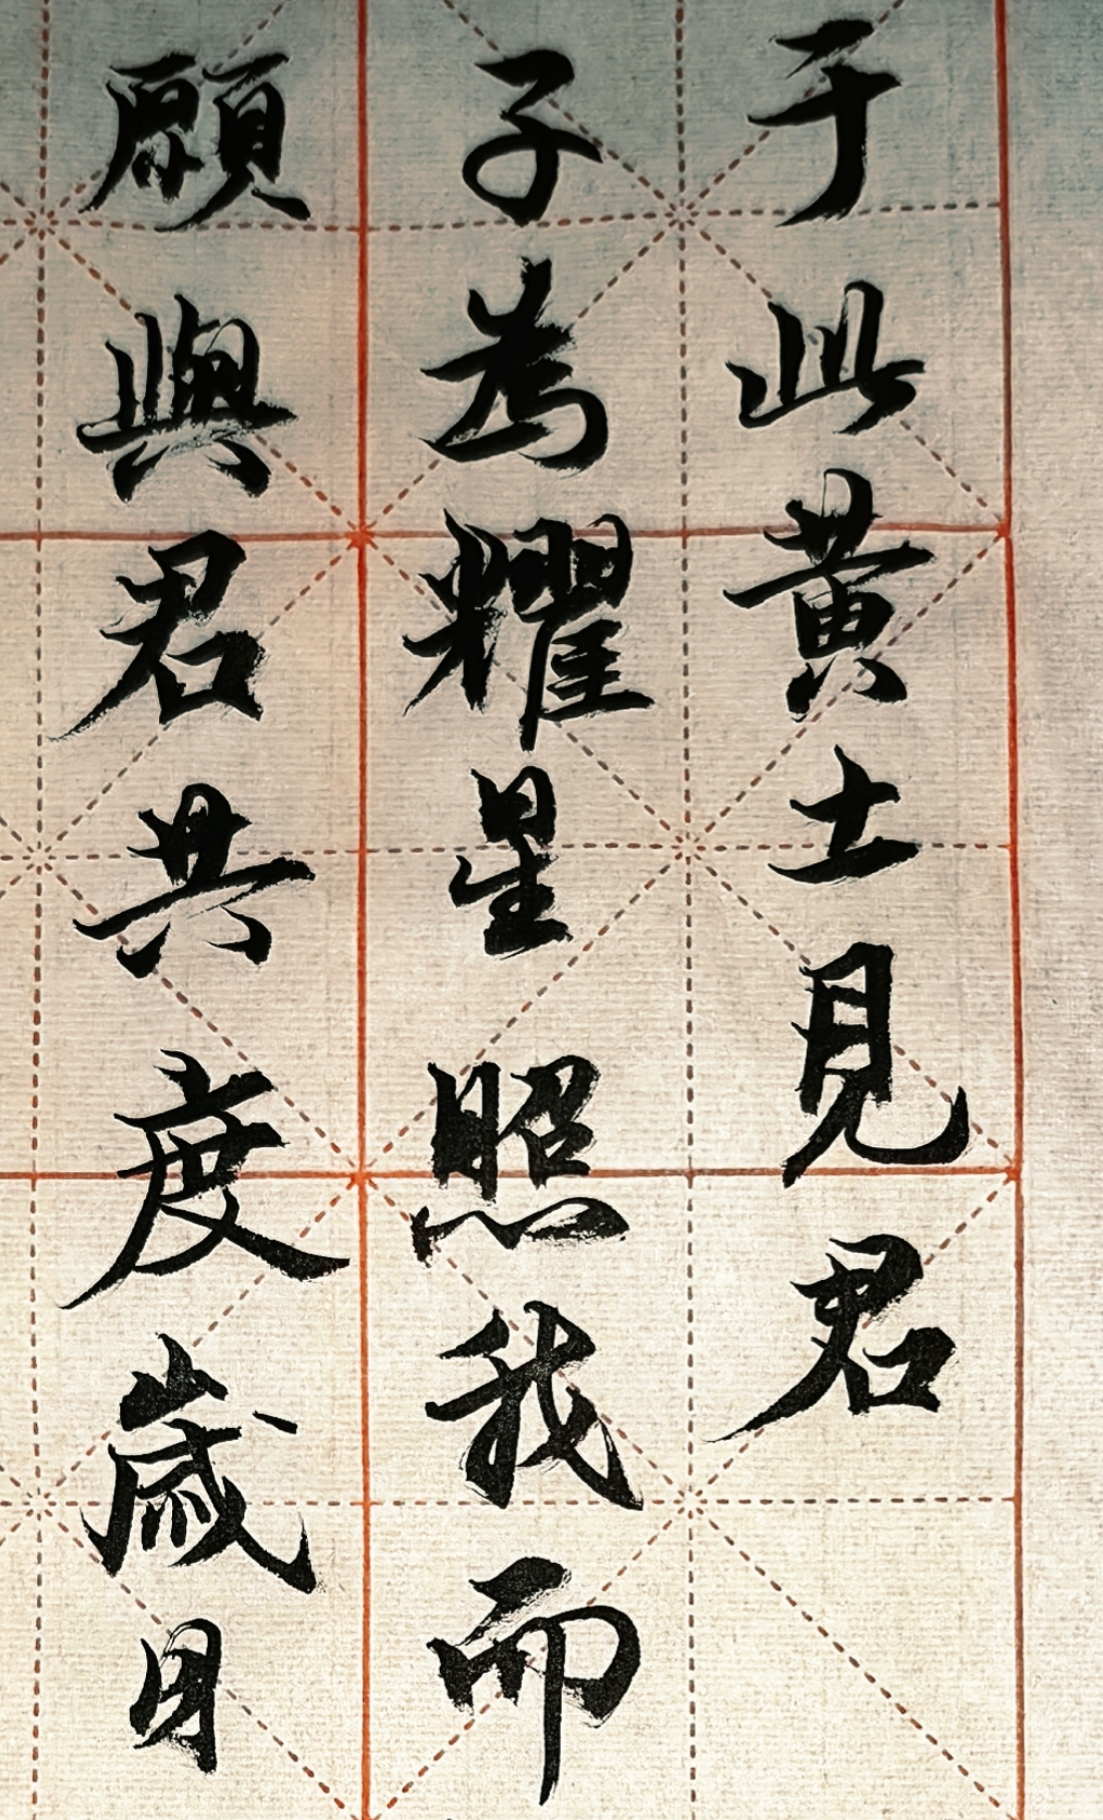 于此黄土見君
子為耀星照我而
願與君共度歲月